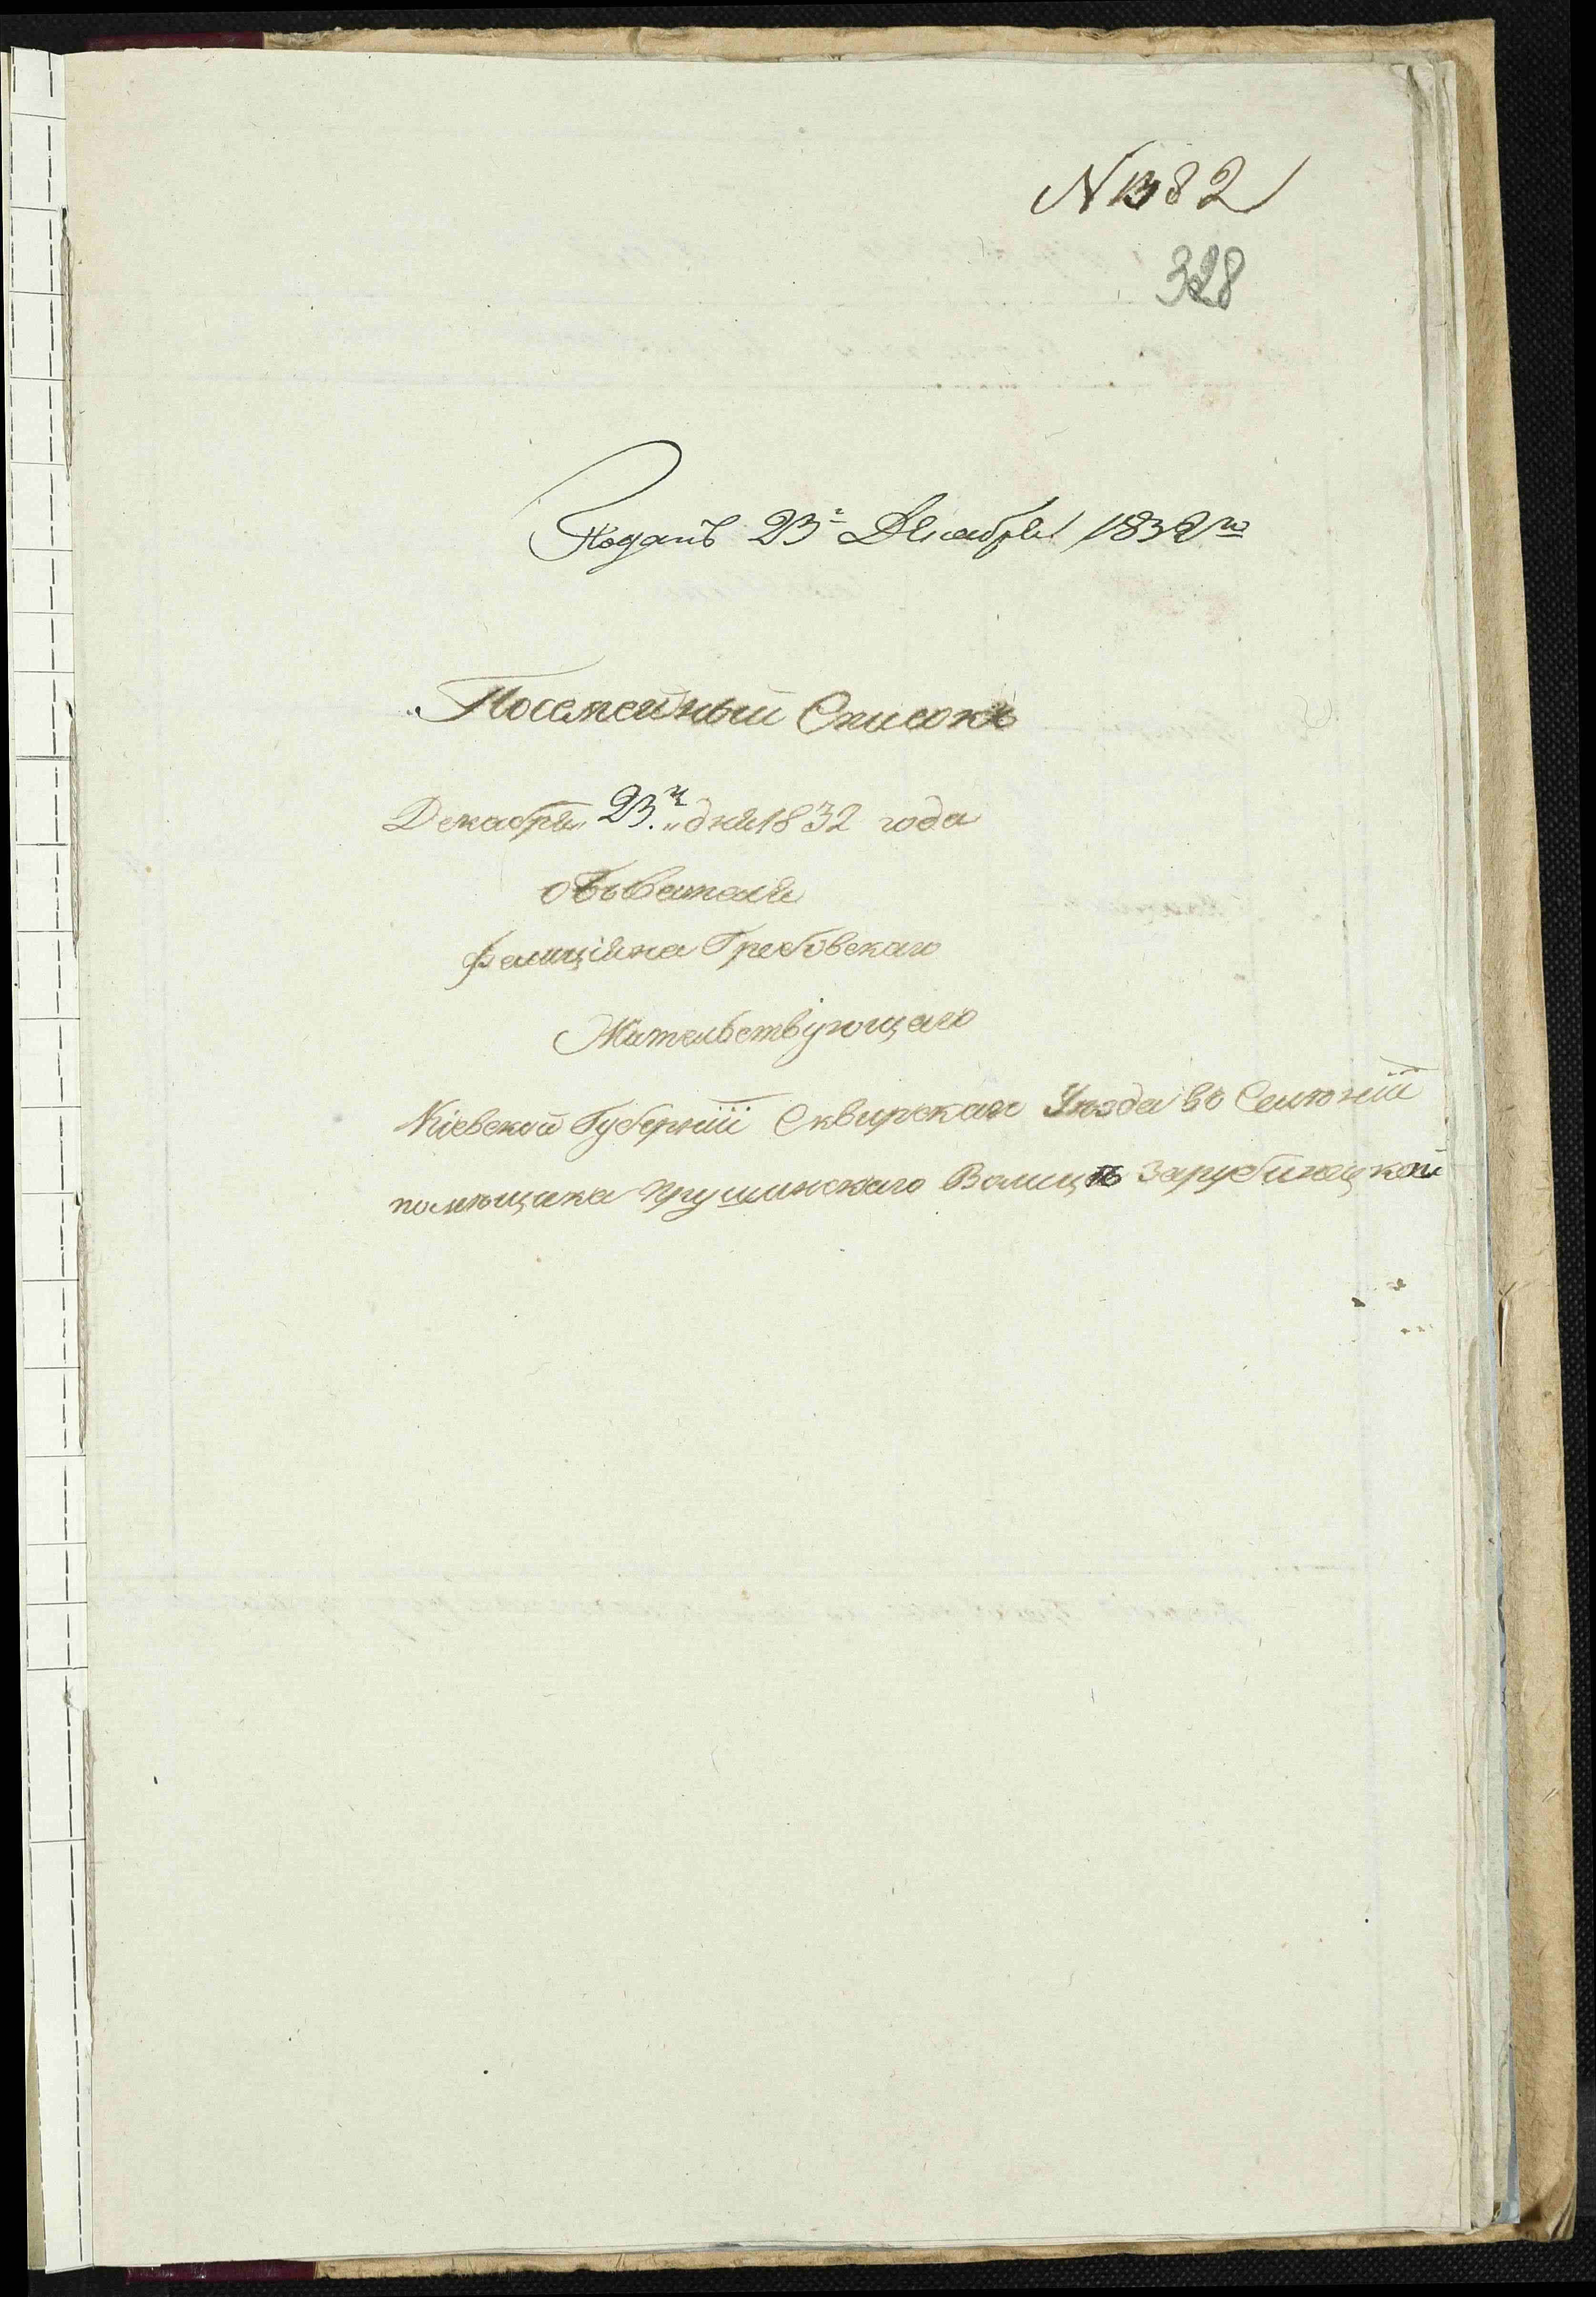 N 1382
328
Поданъ 23го Декабря 1832го
Посемейный Списокъ
Декабря „ 23.го „ дня 1832 года
обывателя
Фелиціяна Гребовскаго
Жительствующаго
Кіевской Губерніи Сквирскаго Уѣзда въ Селѣ
помѣщика Прушинскаго Волицѣ Зарубинецкой